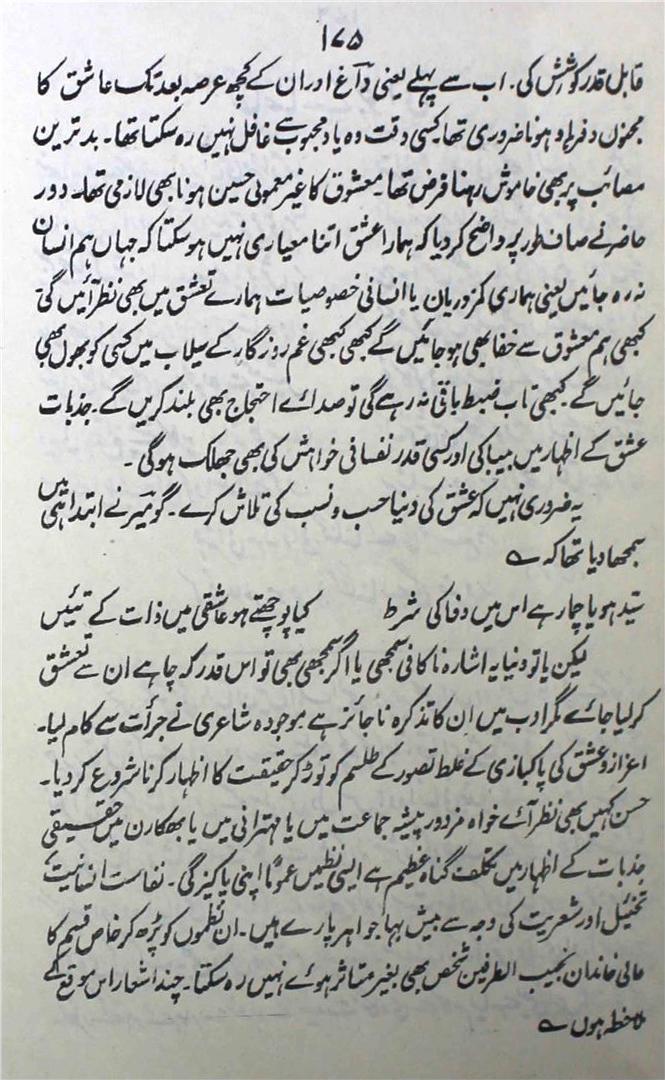 ۱۷۵
قابل قدر کوشش کی۔ اب سے پہلے یعنی داغ اور ان کے کچھ عرصہ بعد تک عاشق کا
مجنوں و فرہاد ہونا ضروری تھا کسی وقت وہ یاد محبوب سے غافل نہیں رہ سکتا تھا۔ بدترین
مصائب پر بھی خاموش رہنا فرض تھا۔ معشوق کا غیر معمولی حسین ہونا بھی لازمی تھا۔ دور
حاضر نے صاف طور پر واضح کر دیا کہ ہمارا عشق اتنا معیاری نہیں ہو سکتا کہ جہاں ہم انسان
نہ رہ جائیں یعنی ہماری کمزوریاں یا انسانی خصوصیات ہمارے تعشق میں بھی نظر آئیں گی
کبھی ہم معشوق سے خفا بھی ہو جائیں گے کبھی کبھی غم روزگار کے سیلاب میں کسی کو بھول بھی
جائیں گے۔ کبھی تاب ضبط باقی نہ رہے گی تو صدائے احتجاج بھی بلند کریں گے۔ جذبات
عشق کے اظہار میں بیباکی اور کسی قدر نفسانی خواہش کی بھی جھلک ہوگی۔
یہ ضروری نہیں کہ عشق کی دنیا حسب و نسب کی تلاش کرے۔ گو میر نے ابتدا ہی میں
سمجھا دیا تھا کہ ؎
سید ہو یا چمار ہے اس میں وفا کی شرط کیا پوچھتے ہو عاشقی میں ذات کے تئیں
لیکن یا تو دنیا یہ اشارہ ناکافی سمجھی یا اگر سمجھی بھی تو اس قدر کہ چاہے ان سے تعشق
کر لیا جائے مگر ادب میں ان کا تذکرہ ناجائز ہے موجودہ شاعری نے جرأت سے کام لیا۔
اعزاز و عشق کی پاکبازی کے غلط تصور کے طلسم کو توڑ کر حقیقت کا اظہار کرنا شروع کر دیا۔
حسن کہیں بھی نظر آئے خواہ مزدور پیشہ جماعت میں یا مہترانی میں یا بھکارن میں حقیقی
جذبات کے اظہار میں تکلف گناہ عظیم ہے ایسی نظمیں عموماً اپنی پاکیزگی۔ نفاست انسانیت
تخئیل اور شعریت کی وجہ سے بیش بہا جواہر پارے ہیں۔ ان نظموں کو پڑھ کر خاص قسم کا
عالی خاندان نجیب الطرفین شخص بھی بغیر متاثر ہوئے نہیں رہ سکتا۔ چند اشعار اس موقع کے
ملاحظہ ہوں ؎